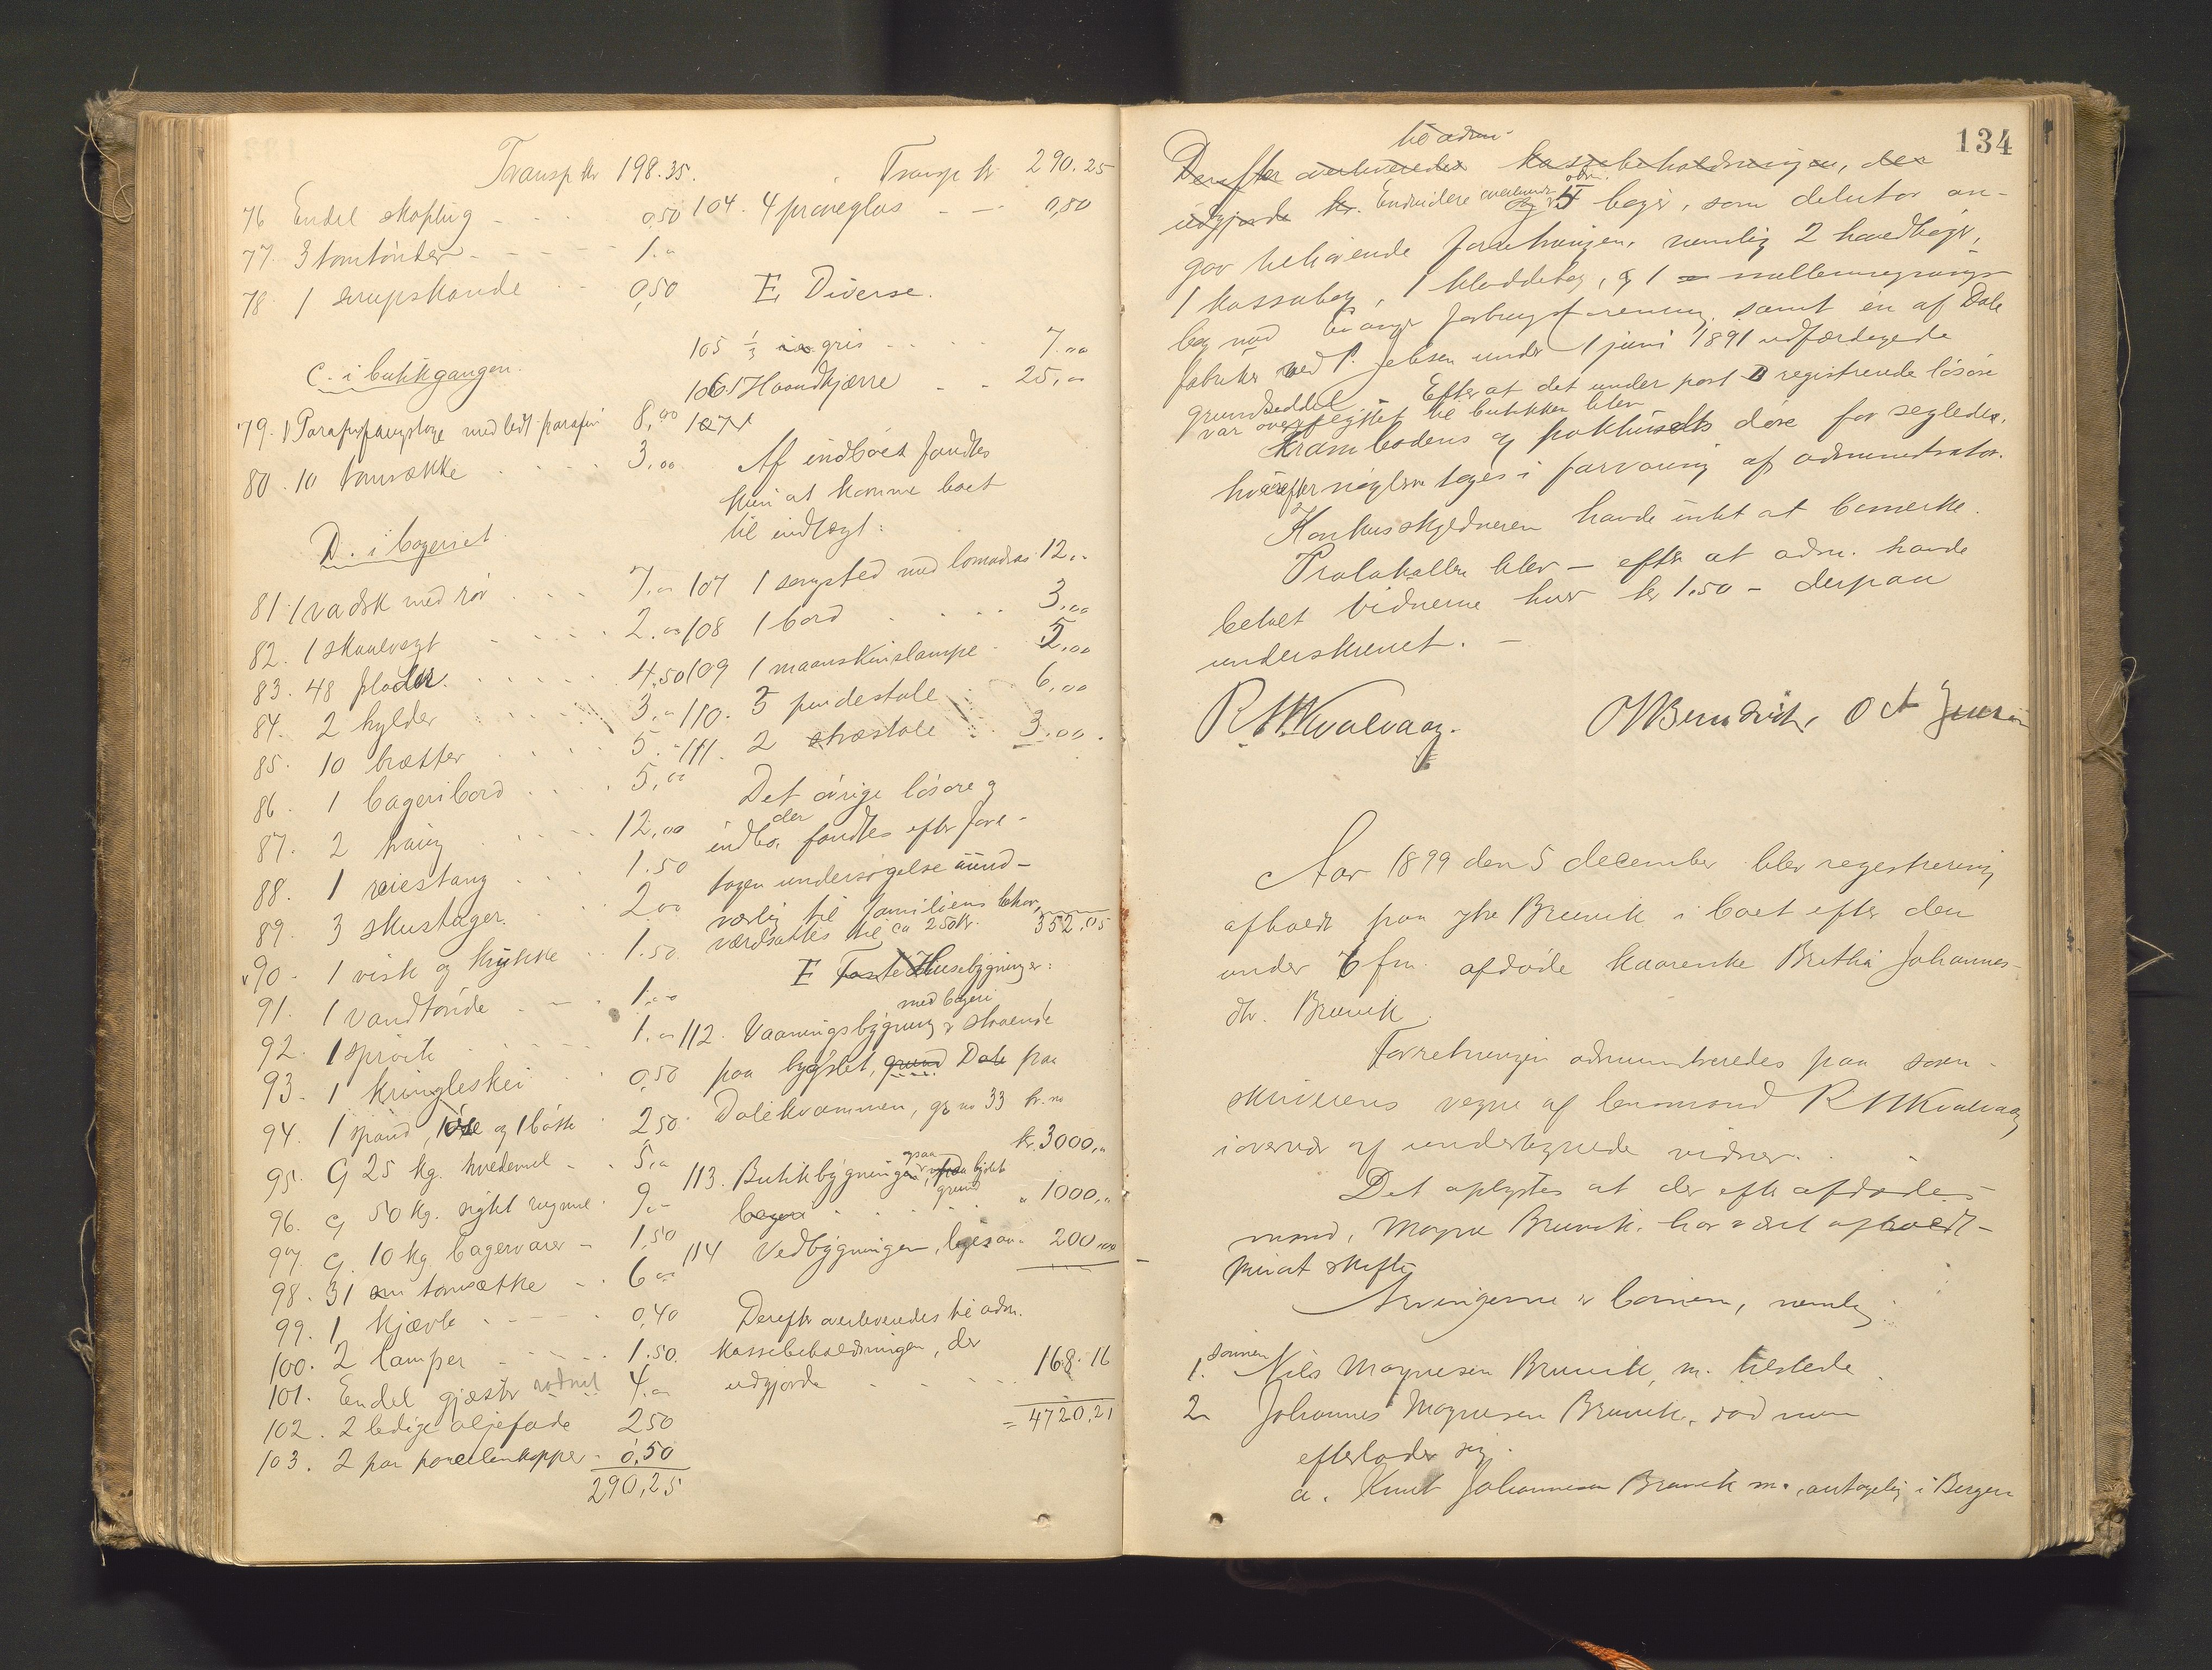 Transp kr 198.35.
76 Endel skoptug - - - 0,50
77. 3 tomtönder - - - - 1.„
78 1 sirupskande - - 0,50
C. i butikgangen.
79. 1 Parafinfang med lidt parafin 8,00
80. 10 tomsække . . . . 3,00
D. i bageriet
81. 1 vadsk med rör . . . . 7.„
82. 1 skaalvegt . . . . . 2.00
83. 48 plader . . . . . . 4.50
84. 2 hylder . . . . . 3.„
85. 10 brætter . . . . . 5.„
86. 1 bageribord . . . . 5,00
87. 2 traug . . . . 12,00
88. 1 reiestang . . . . 1.50
89. 3 skustager . . . 2 00
90. 1 visk og krukke . . 1.50
91. 1 vandtönde . - . 1.00
92. 1 spröit . . . . . 1.„
93. 1 kringleskei . . 0,50
94. 1 spand, 1 öse og 1 bötte 2 50.
95. C 25 kg. hvedemel - . . 5,„
96. C 50 kg. sigtet rugmel . 9.-
97. C. 10 kg bagervarer - 1,50
98. 31 tomsække - . . 6 00
99. 1 kjævle . - - - . 0,40
100. 2 lamper - - - - - 1.50.
101. Endel gjæster 4.„
102. 2 ledige oljefade 2 50
103. 2 par porcellenkopper . 0,50
290,25
Transp kr 290.25
104. 4 præveglas - - - 0,80
E Diverse.
105 1/3 gris . . . . . 7.00
106 1 Haandkjærre - - 25,00
107
Af indboet fandtes
kun at komme boet
til indtægt:
107 1 sengsted med 12.-
108 1 bord . . . . . 3,00
109 1 maaneskinslampe . 5,00
110. 3 pindestole . . 6,00
111. 2 træstole . . . 3.00.
Det övrige lösöre og
der
indbo, fandtes efter fore-
tagen undersögelse nund-
værlig til familiens behov,
værdsattes til ca 250 kr. 352,05
E Faste Husebygninger:
med bageri
112. Vaaningsbygning staaende
paa bygslet, grund Dale paa
Dalekvammen, gr no 33 br. no
kr. 3000,„
113. Butikbygningen, ogsaa paa bygslet
grund
bageri . . . . . . „ 1000,„
114 Vedbygningen, ligesaa. 200,00
Derefter overleveredes til adm.
kassebeholdningen, der
udgjorde . . . - - - 168.16
= 4720,21
134
til adm.
Derefter overleveredes kassebeholdningen, der
udgjorde kr. Endvidere overleveredes adm. 5 böger, som debitor an-
gav vedkommende forretningen, nemlig 2 hovedböger,
1 kassabog, 1 kladdebog, og 1 mellemregnings-
bog med forbrugsforening, samt en af Dale
fabriker ved P. Jebsen under 1 juni 1891 udfærdigede
grundseddel. Efter at det under post D registrerede lösöre
var overflyttet til butikken blev
Krambodens og pakhusets döre for seglede,
hvorefter nöglene toges i forvaring af administrator.
Konkursskyldneren havde intet at bemerke.
Protokollen blev - efter at adm. havde
betalt vidnerne hver kr 1.50 - derpaa
underskrevet. -
R. M Kvalvaag. 
Aar 1899 den 5 december blev registrering
afholdt paa ytre Bruvik i boet efter den
under 7 f m. afdöde kaarenke Bretha Johannes-
dtr. Bruvik.
Forretningen administreredes paa soren-
skriverens vegne af lensmand R M Kvalvaag
i overvær af undertegnede vidner.
Det oplystes at der efter afdödes
mand, Magne Bruvik, har været afholdt
privat skifte
Arvingerne er börnene, nemlig:
1. sönnen Nils Magnesen Bruvik, m. tilstede.
2. Johannes Magnesen Bruvik, död men
efterlader sig.
a. Knut Johannesen Bruvik m., antagelig i Bergen